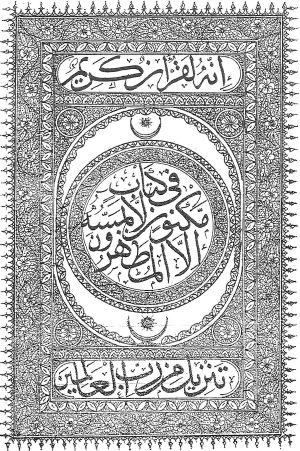 إنه لقرآن كريم
في كتاب
مكنون لا يمسه
إلا المطهرون
تنزيل من رب العالمين